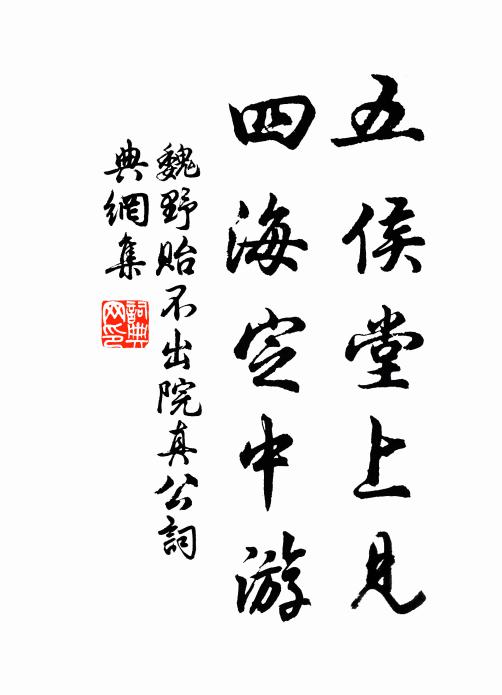 五侯堂上見
四海定中游
魏野貽不出院真公詞
典網集
詞典
网印